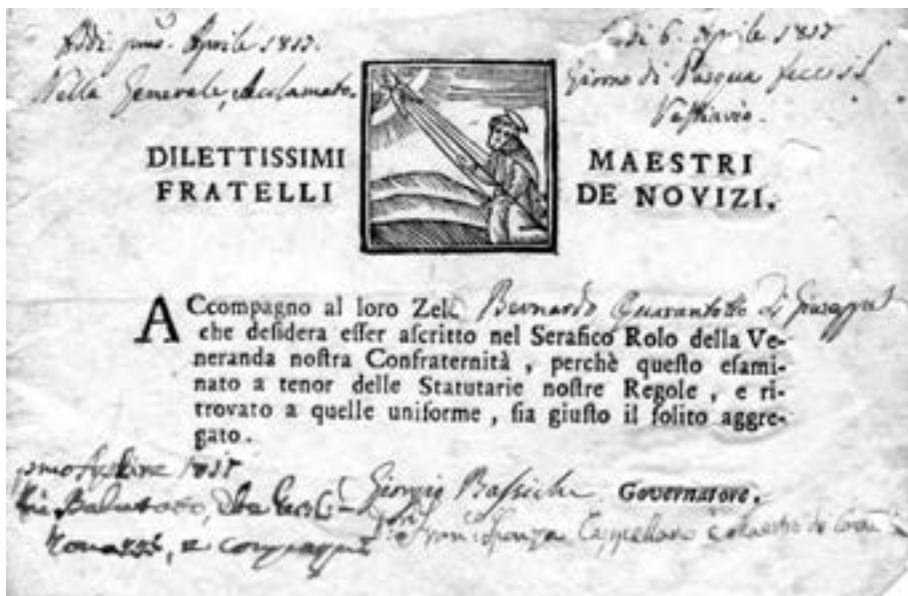 Addi pmo. Aprile 1817.
Nella Generale, Acclamato.
Addi 6. Aprile 1817
Giorno di Pasqua fecesi
DILETTISSIMI MAESTRI
FRATELLI DE NOVIZI.
ACcompagno al loro Zelo Bernardo Quarantotto di Giuseppe
che deſidera eſſer aſcritto nel Serafico Rolo della Ve-
neranda noſtra Confraternità , perchè queſto eſami-
nato a tenor delle Statutarie noſtre Regole , e ri-
trovato a quelle uniforme , ſia giuſto il ſolito aggre-
gato .
1817
Giorgio Governatore.
Cappellano e Maestro di